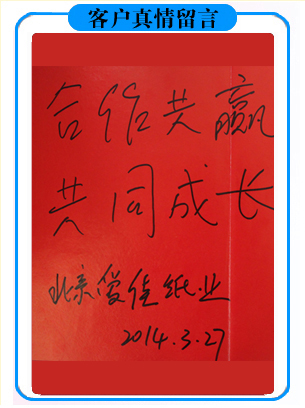 客户真情留言
合作共赢
共同成长
北京俊佳纸业
2014.3.27